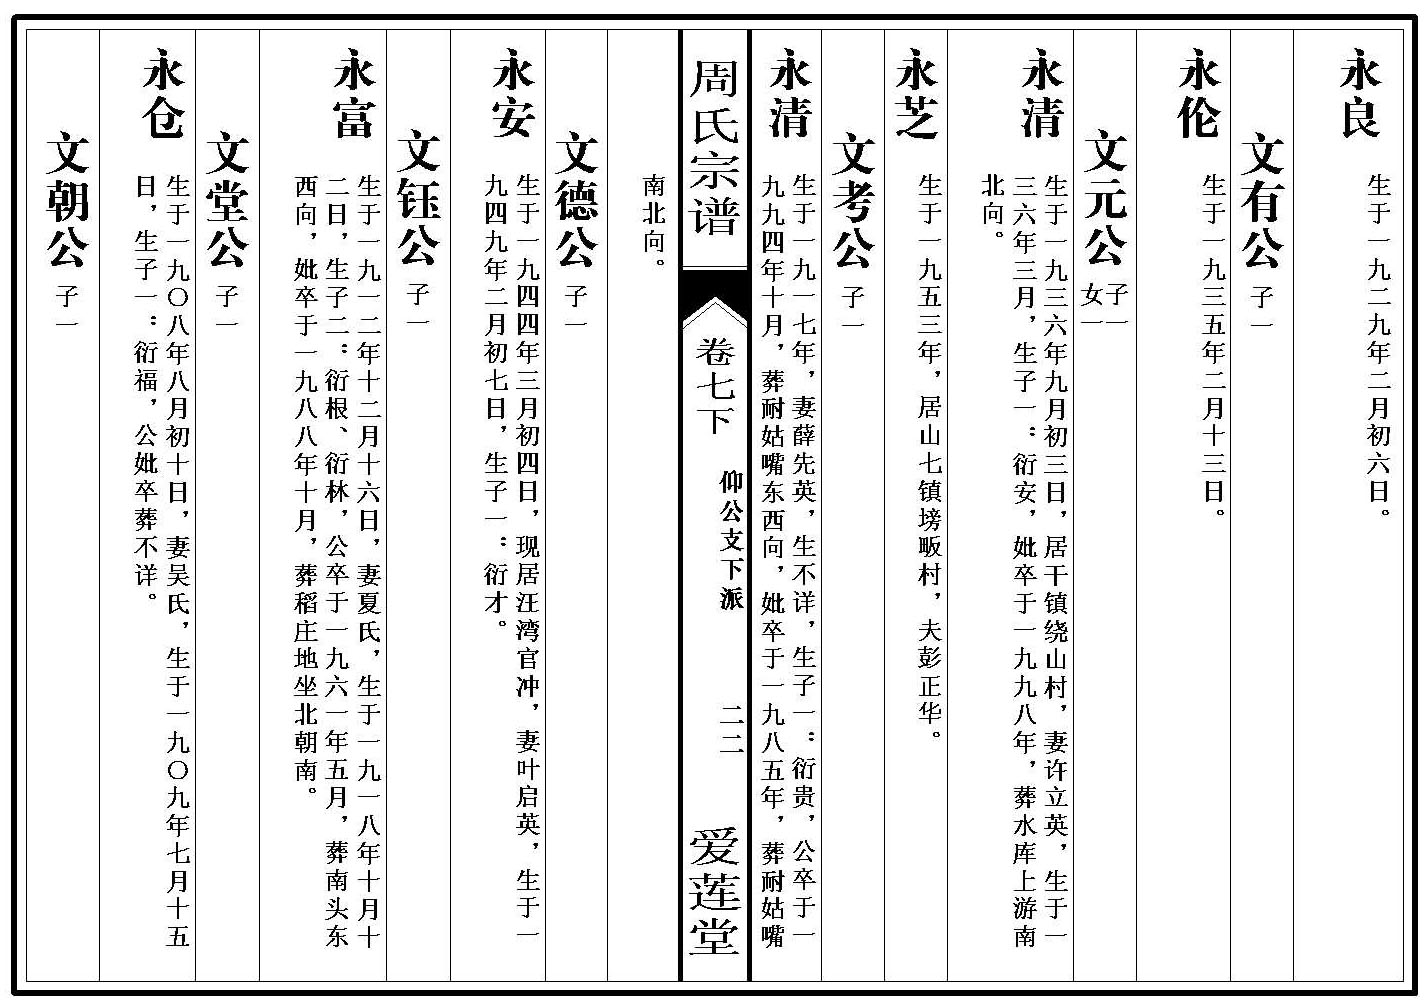 永良
生于一九二九年二月初六日。
文有公 子一
永伦
生于一九三五年二月十三日。
文元公 子一
女一
永清
生于一九三六年九月初三日，居干镇绕山村，妻许立英，生于一
三六年三月，生子一：衍安，妣卒于一九九八年，葬水库上游南
北向。
永芝
生于一九五三年，居山七镇塝畈村，夫彭正华。
文考公 子一
永清
生于一九一七年，妻薛先英，生不详，生子一：衍贵，公卒于一
九九四年十月，葬耐姑嘴东西向，妣卒于一九八五年，葬耐姑嘴
周氏宗谱
卷七下
仰公支下派
二二
爱莲堂
南北向。
文德公 子一
永安
生于一九四四年三月初四日，现居汪湾官冲，妻叶启英，生于一
九四九年二月初七日，生子一：衍才。
文钰公 子一
永富
生于一九一二年十二月十六日，妻夏氏，生于一九一八年十月十
二日，生子二：衍根、衍林，公卒于一九六一年五月，葬南头东
西向，妣卒于一九八八年十月，葬稻庄地坐北朝南。
文堂公 子一
永仓
生于一九〇八年八月初十日，妻吴氏，生于一九〇九年七月十五
日，生子一：衍福，公妣卒葬不详。
文朝公 子一